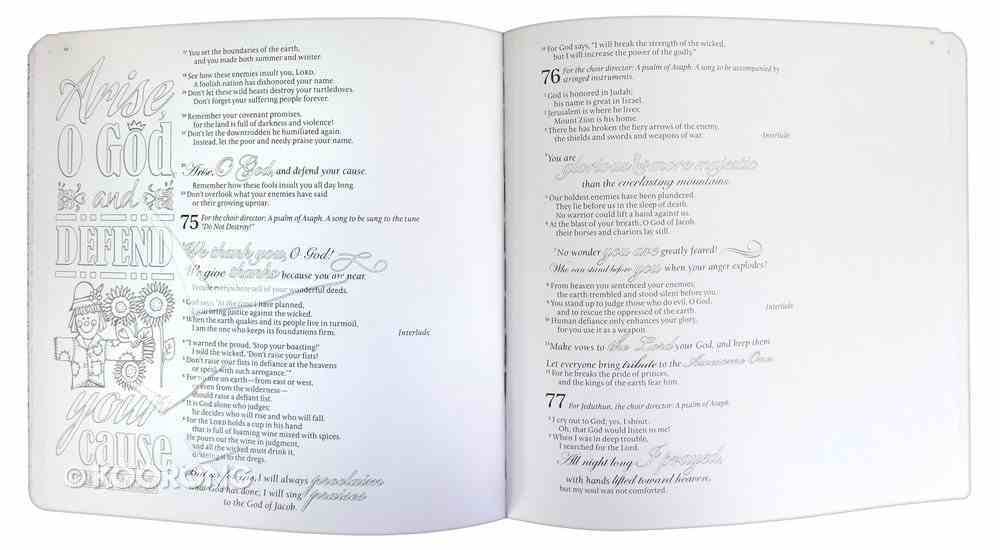 Arise,
O God
and
DEFEND
your
cause
© KOORONG
17 You set the boundaries of the earth,
and you made both summer and winter.
18 See how these enemies insult you, LORD.
A foolish nation has dishonored your name.
19 Don't let these wild beasts destroy your turtledoves.
Don't forget your suffering people forever.
20 Remember your covenant promises,
for the land is full of darkness and violence!
21 Don't let the downtrodden be humiliated again.
Instead, let the poor and needy praise your name.
22 Arise, O God, and defend your cause.
Remember how these fools insult you all day long.
23 Don't overlook what your enemies have said
or their growing uproar.
75 For the choir director: A psalm of Asaph. A song to be sung to the tune
"Do Not Destroy!"
1 We thank you, O God!
We give thanks because you are near.
People everywhere tell of your wonderful deeds.
2 God says, "At the time I have planned,
I will bring justice against the wicked.
3 When the earth quakes and its people live in turmoil,
I am the one who keeps its foundations firm. Interlude
4 "I warned the proud, 'Stop your boasting!'
I told the wicked, 'Don't raise your fists!
5 Don't raise your fists in defiance at the heavens
or speak with such arrogance.'"
6 For no one on earth—from east or west,
or even from the wilderness—
should raise a defiant fist.
7 It is God alone who judges;
he decides who will rise and who will fall.
8 For the LORD holds a cup in his hand
that is full of foaming wine mixed with spices.
He pours out the wine in judgment,
and all the wicked must drink it,
draining it to the dregs.
9 But as for me, I will always proclaim
what God has done; I will sing praises
to the God of Jacob.
10 For God says, "I will break the strength of the wicked,
but I will increase the power of the godly."
76 For the choir director: A psalm of Asaph. A song to be accompanied by
stringed instruments.
1 God is honored in Judah;
his name is great in Israel.
2 Jerusalem is where he lives;
Mount Zion is his home.
3 There he has broken the fiery arrows of the enemy,
the shields and swords and weapons of war. Interlude
4 You are
glorious & more majestic
than the everlasting mountains.
5 Our boldest enemies have been plundered.
They lie before us in the sleep of death.
No warrior could lift a hand against us.
6 At the blast of your breath, O God of Jacob,
their horses and chariots lay still.
7 No wonder you are greatly feared!
Who can stand before you when your anger explodes?
8 From heaven you sentenced your enemies;
the earth trembled and stood silent before you.
9 You stand up to judge those who do evil, O God,
and to rescue the oppressed of the earth. Interlude
10 Human defiance only enhances your glory,
for you use it as a weapon.
11 Make vows to the Lord your God, and keep them.
Let everyone bring tribute to the Awesome One.
12 For he breaks the pride of princes,
and the kings of the earth fear him.
77 For Jeduthun, the choir director: A psalm of Asaph.
1 I cry out to God; yes, I shout.
Oh, that God would listen to me!
2 When I was in deep trouble,
I searched for the Lord.
All night long I prayed,
with hands lifted toward heaven,
but my soul was not comforted.